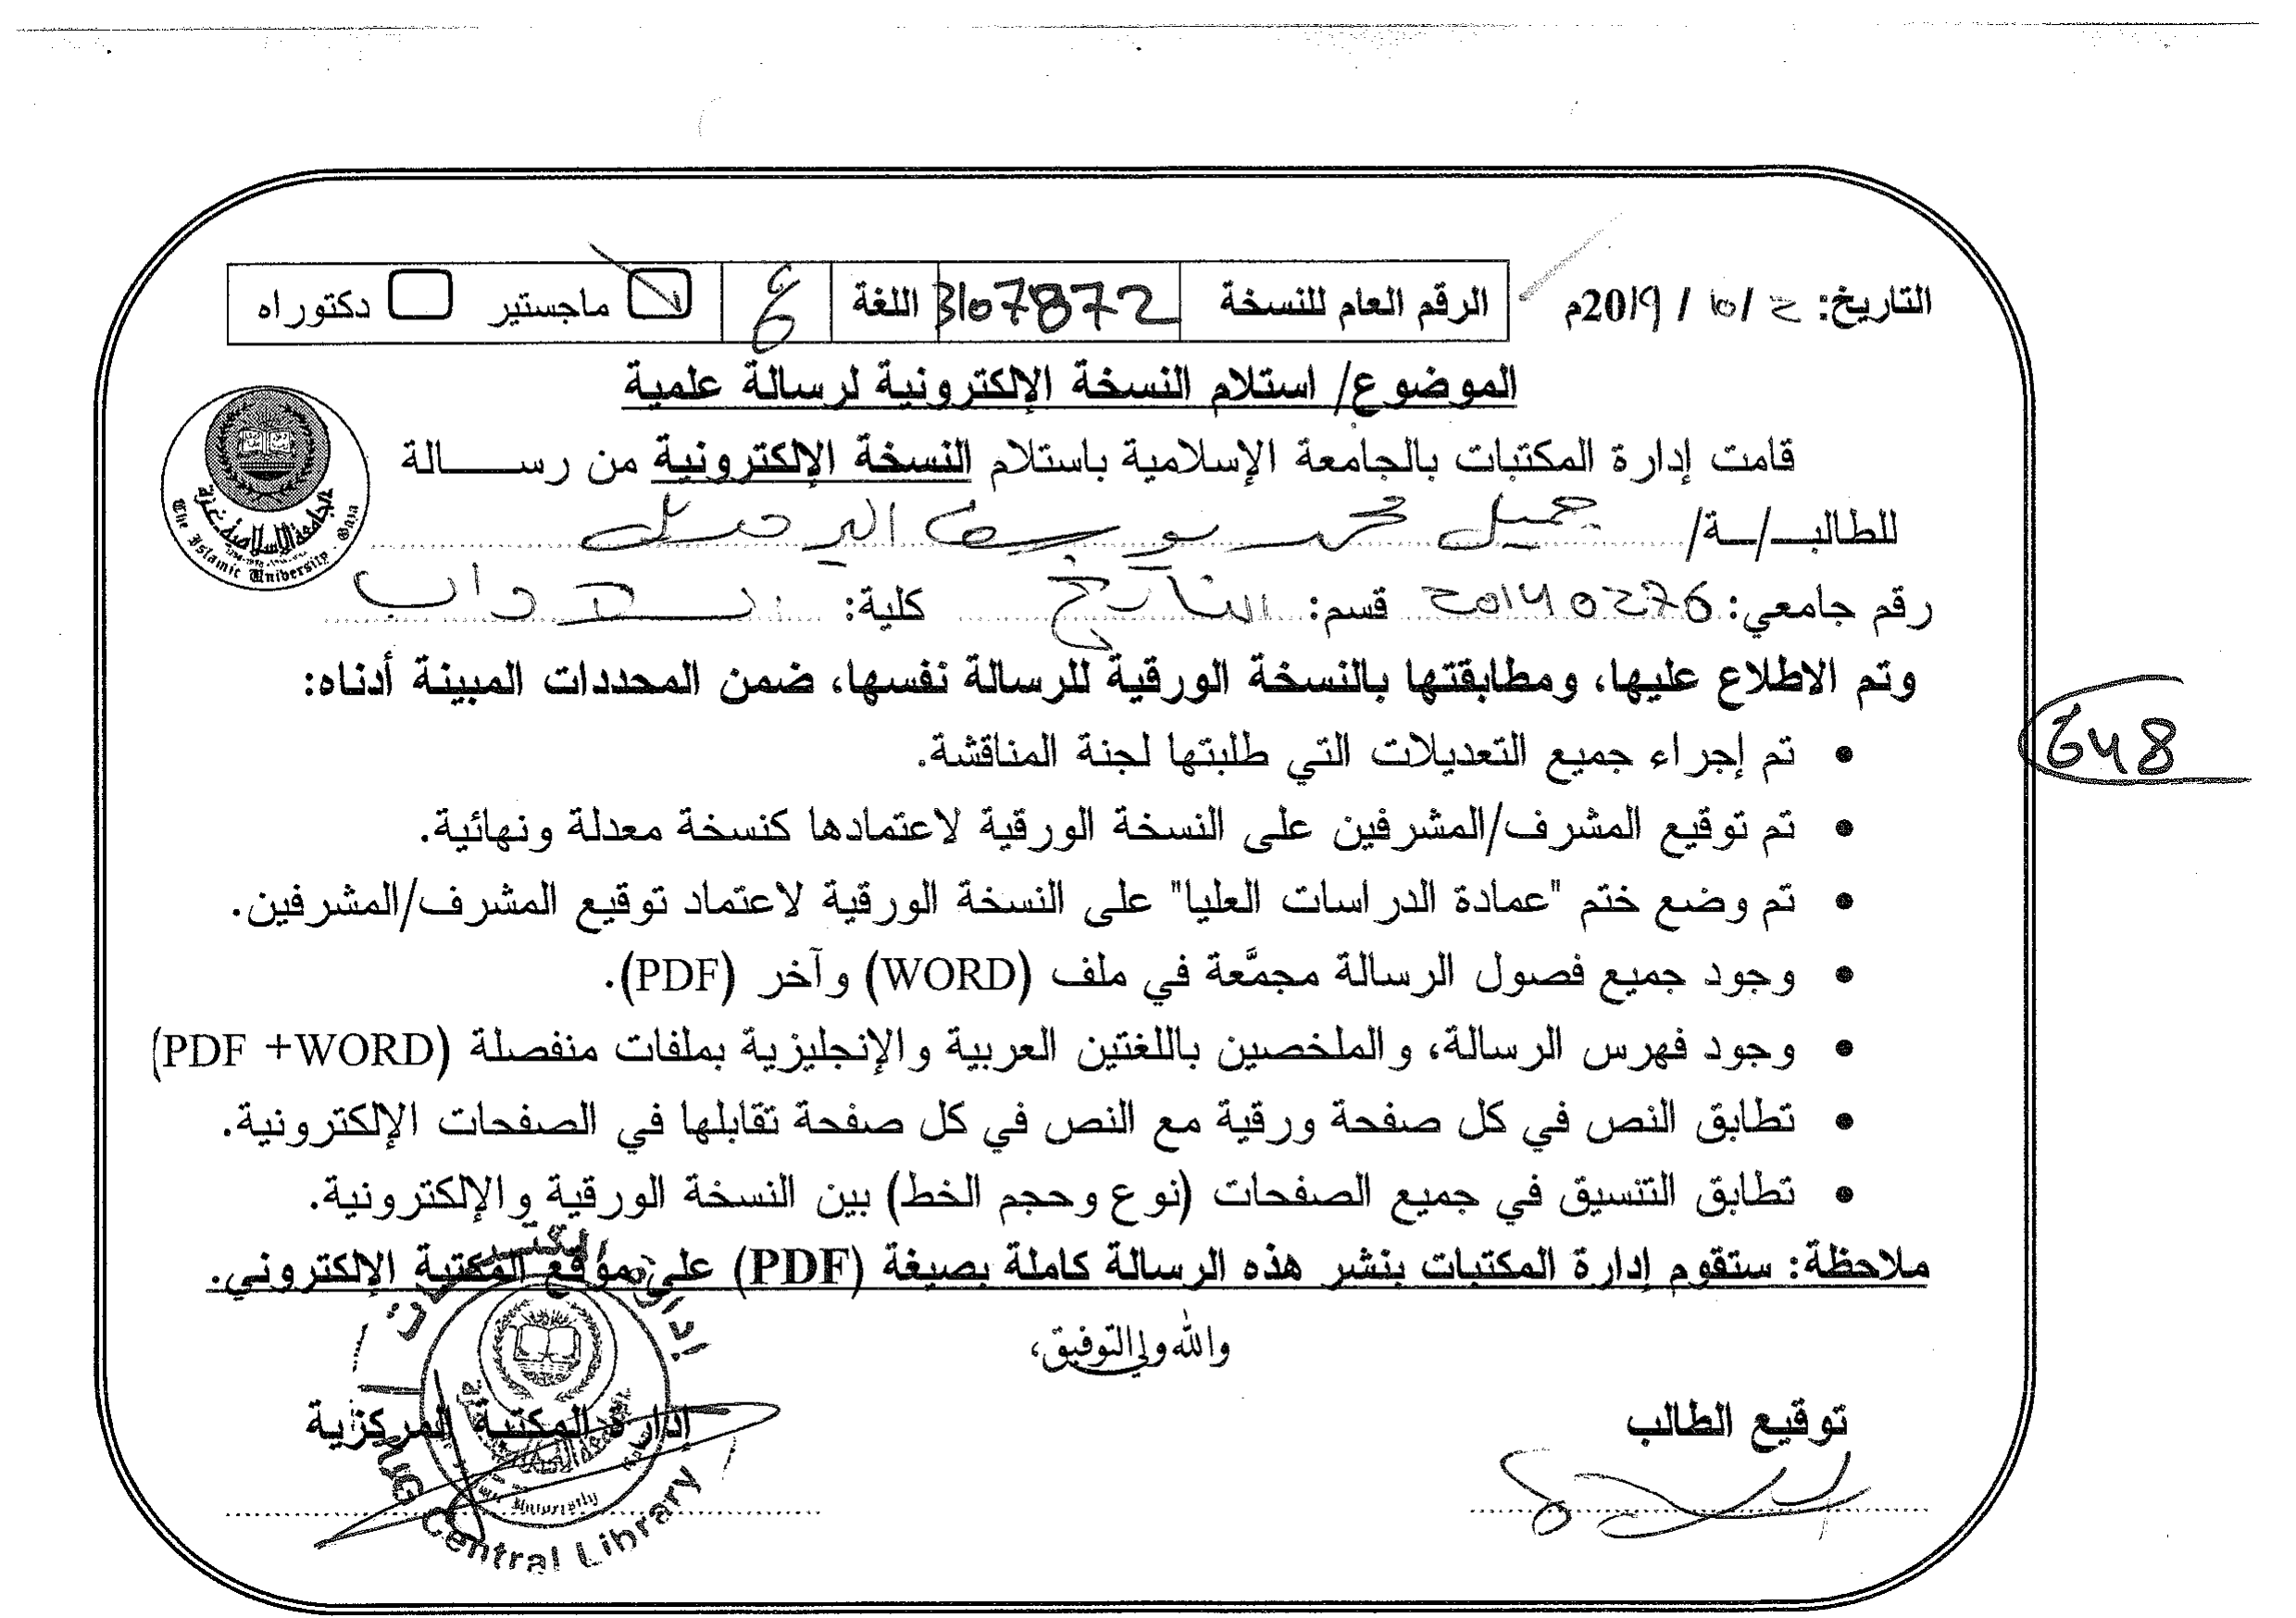 التاريخ: 2 / 10 / 2019م الرقم العام للنسخة 3107872 اللغة ع ماجستير دكتوراه
الموضوع/ استلام النسخة الإلكترونية لرسالة علمية
قامت إدارة المكتبات بالجامعة الإسلامية باستلام النسخة الإلكترونية من رســالة
للطالبـ/ـة/ جميل محمد يوسف
رقم جامعي: 20140276 قسم: التاريخ كلية: الآداب
وتم الاطلاع عليها، ومطابقتها بالنسخة الورقية للرسالة نفسها، ضمن المحددات المبينة أدناه:
648
• تم إجراء جميع التعديلات التي طلبتها لجنة المناقشة.
• تم توقيع المشرف/المشرفين على النسخة الورقية لاعتمادها كنسخة معدلة ونهائية.
• تم وضع ختم "عمادة الدراسات العليا" على النسخة الورقية لاعتماد توقيع المشرف/المشرفين.
• وجود جميع فصول الرسالة مجمَّعة في ملف (WORD) وآخر (PDF).
• وجود فهرس الرسالة، والملخصين باللغتين العربية والإنجليزية بملفات منفصلة (PDF +WORD)
• تطابق النص في كل صفحة ورقية مع النص في كل صفحة تقابلها في الصفحات الإلكترونية.
• تطابق التنسيق في جميع الصفحات (نوع وحجم الخط) بين النسخة الورقية والإلكترونية.
ملاحظة: ستقوم إدارة المكتبات بنشر هذه الرسالة كاملة بصيغة (PDF) على موقع المكتبة الإلكتروني.
والله ولي التوفيق،
توقيع الطالب إدارة المكتبة المركزية
الجامعة الإسلامية غزة
The Islamic University . Gaza
IUG Central Library